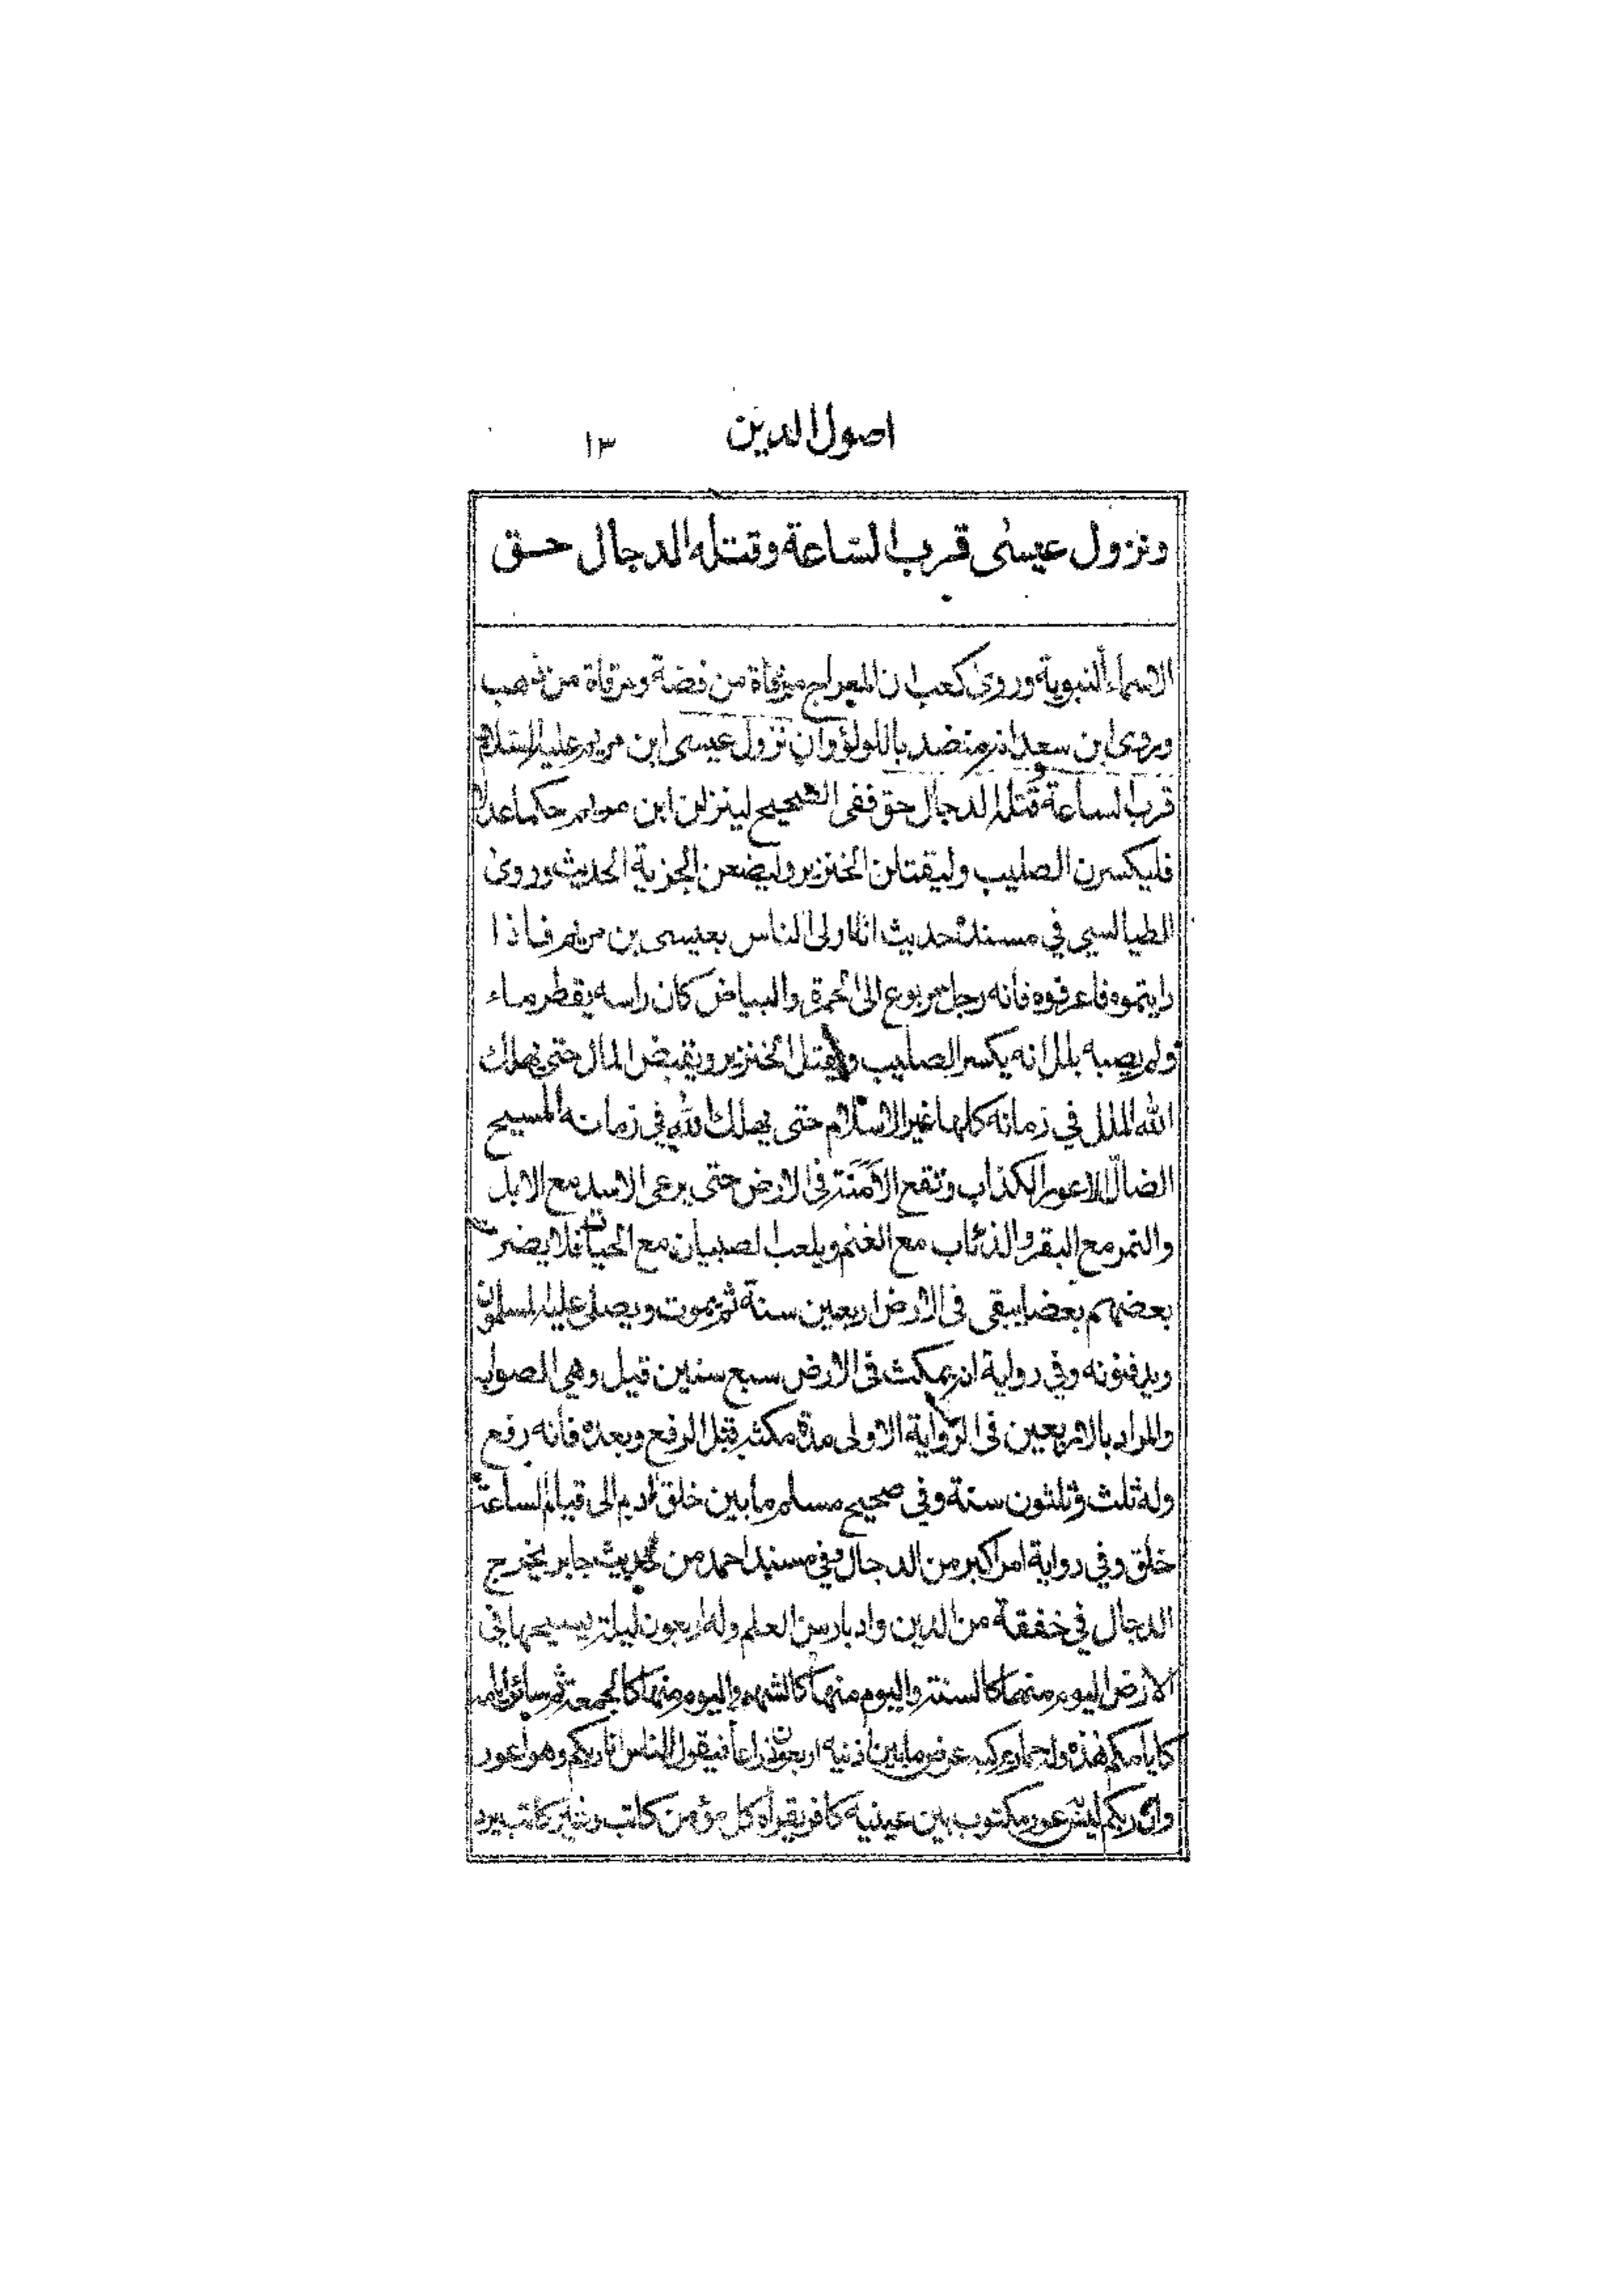 اصول الدين ١٣
ونزول عيسى قرب الساعة وقتله الدجال حق
الاسماء النبوية وروى كعب ان المعراج مرقاة من فضة ومرقاة من ذهب
وروى ابن سعد انه منضد باللولؤ وان نزول عيسى ابن مريم عليه السلام
قرب الساعة وقتله الدجال حق ففى الصحيح لينزلن ابن مريم حكما عدلا
فليكسرن الصليب وليقتلن الخنزير وليضعن الجزية الحديث وروى
الطيالسي في مسنده حديث انا اولى الناس بعيسى بن مريم فاذا
رايتموه فاعرفوه فانه رجل مربوع الى الحمرة والبياض كان راسه يقطر ماء
ولم يصبه بلل انه يكسر الصليب ويقتل الخنزير ويقبض المال حتى يهلك
الله الملل في زمانه كلها غير الاسلام حتى يهلك الله في زمانه المسيح
الضال الاعور الكذاب وتقع الأَمَنَة فى الارض حتى يرعى الاسد مع الابل
والنمر مع البقر والذئاب مع الغنم ويلعب الصبيان مع الحيات فلا يضر
بعضهم بعضا يبقى فى الارض اربعين سنة ثم يموت ويصلى عليه المسلمون
ويدفنونه وفي رواية انه يمكث فى الارض سبع سنين قيل وهي الصواب
والمراد بالاربعين فى الرواية الاولى مدة مكثه قبل الرفع وبعده فانه رفع
وله ثلث وثلثون سنة وفي صحيح مسلم ما بين خلق ادم الى قيام الساعة
خلق وفي رواية امر اكبر من الدجال وفي مسند احمد من حديث جابر يخرج
الدجال في خفقة من الدين وادبار من العلم وله اربعون ليلة يسيحها في
الارض اليوم منها كالسنة واليوم منها كالشهر واليوم منها كالجمعة ثم سائر ايامه
كايامكم هذه وله حمار يركبه عرض ما بين اذنيه اربعون ذراعا فيقول للناس انا ربكم وهو اعور
وان ربكم ليس باعور مكتوب بين عينيه كافر يقرأه كل مؤمن كاتب وغير كاتب يرد